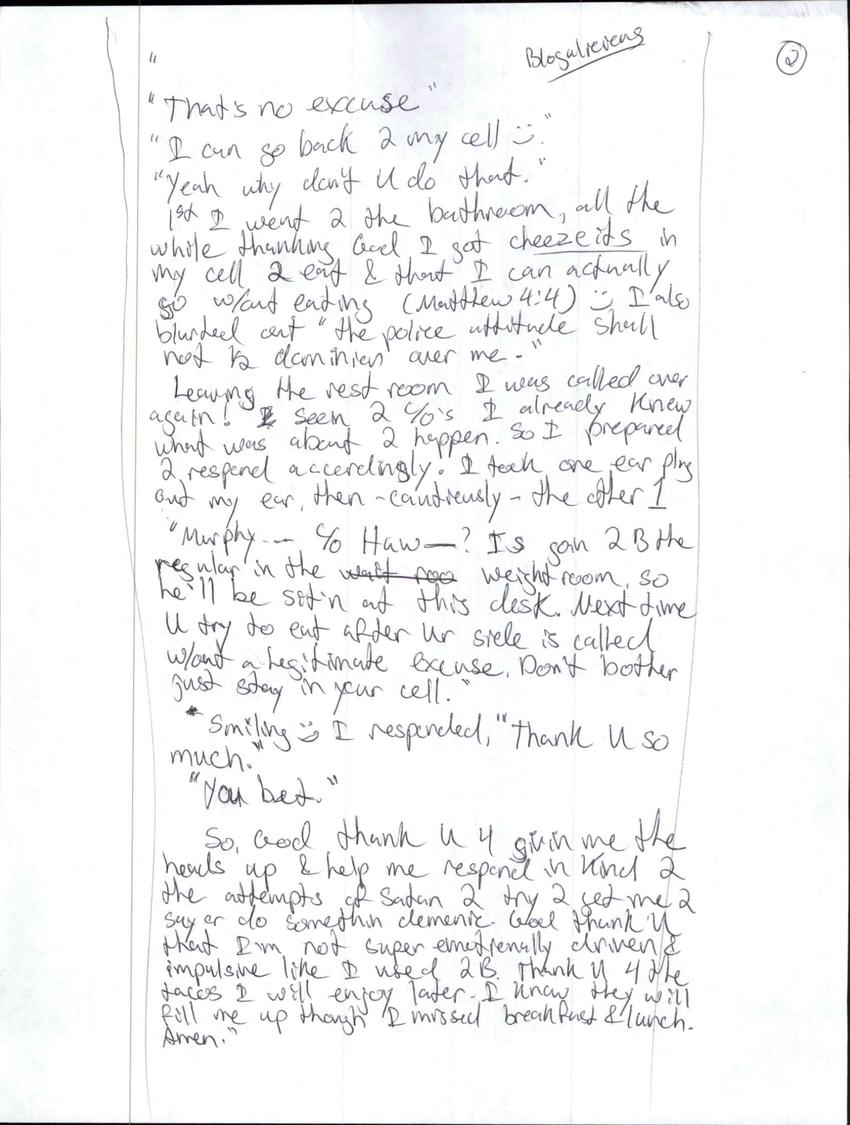 Blogalicious
2
"
"That's no excuse"
"I can go back 2 my cell :)."
"Yeah why don't U do that."
1st I went 2 the bathroom, all the
while thanking God I got cheezeits in
my cell 2 eat & that I can actually
go w/out eating (Matthew 4:4) :) I also
blurted out "the police attitude shall
not B dominion over me."
Leaving the rest room I was called over
again! I seen 2 C/O's I already knew
what was about 2 happen. So I prepared
2 respond accordingly. I took one ear plug
out my ear, then - cautiously - the other 1
"Murphy --- C/O Haw—? Is goin 2 B the
regular in the weight room, so
he'll be sit'n at this desk. Next time
U try to eat after Ur side is called
w/out a legitimate excuse. Don't bother
just stay in your cell."
"Smiling :) I responded, "Thank U so
much."
"You bet."
So, God thank U 4 givin me the
heads up & help me respond in kind 2
the attempts of Satan 2 try 2 get me 2
say or do somethin demonic. God thank U
that I'm not super emotionally driven &
impulsive like I used 2 B. Thank U 4 the
tacos I will enjoy later. I know they will
fill me up though I missed breakfast & lunch.
Amen."